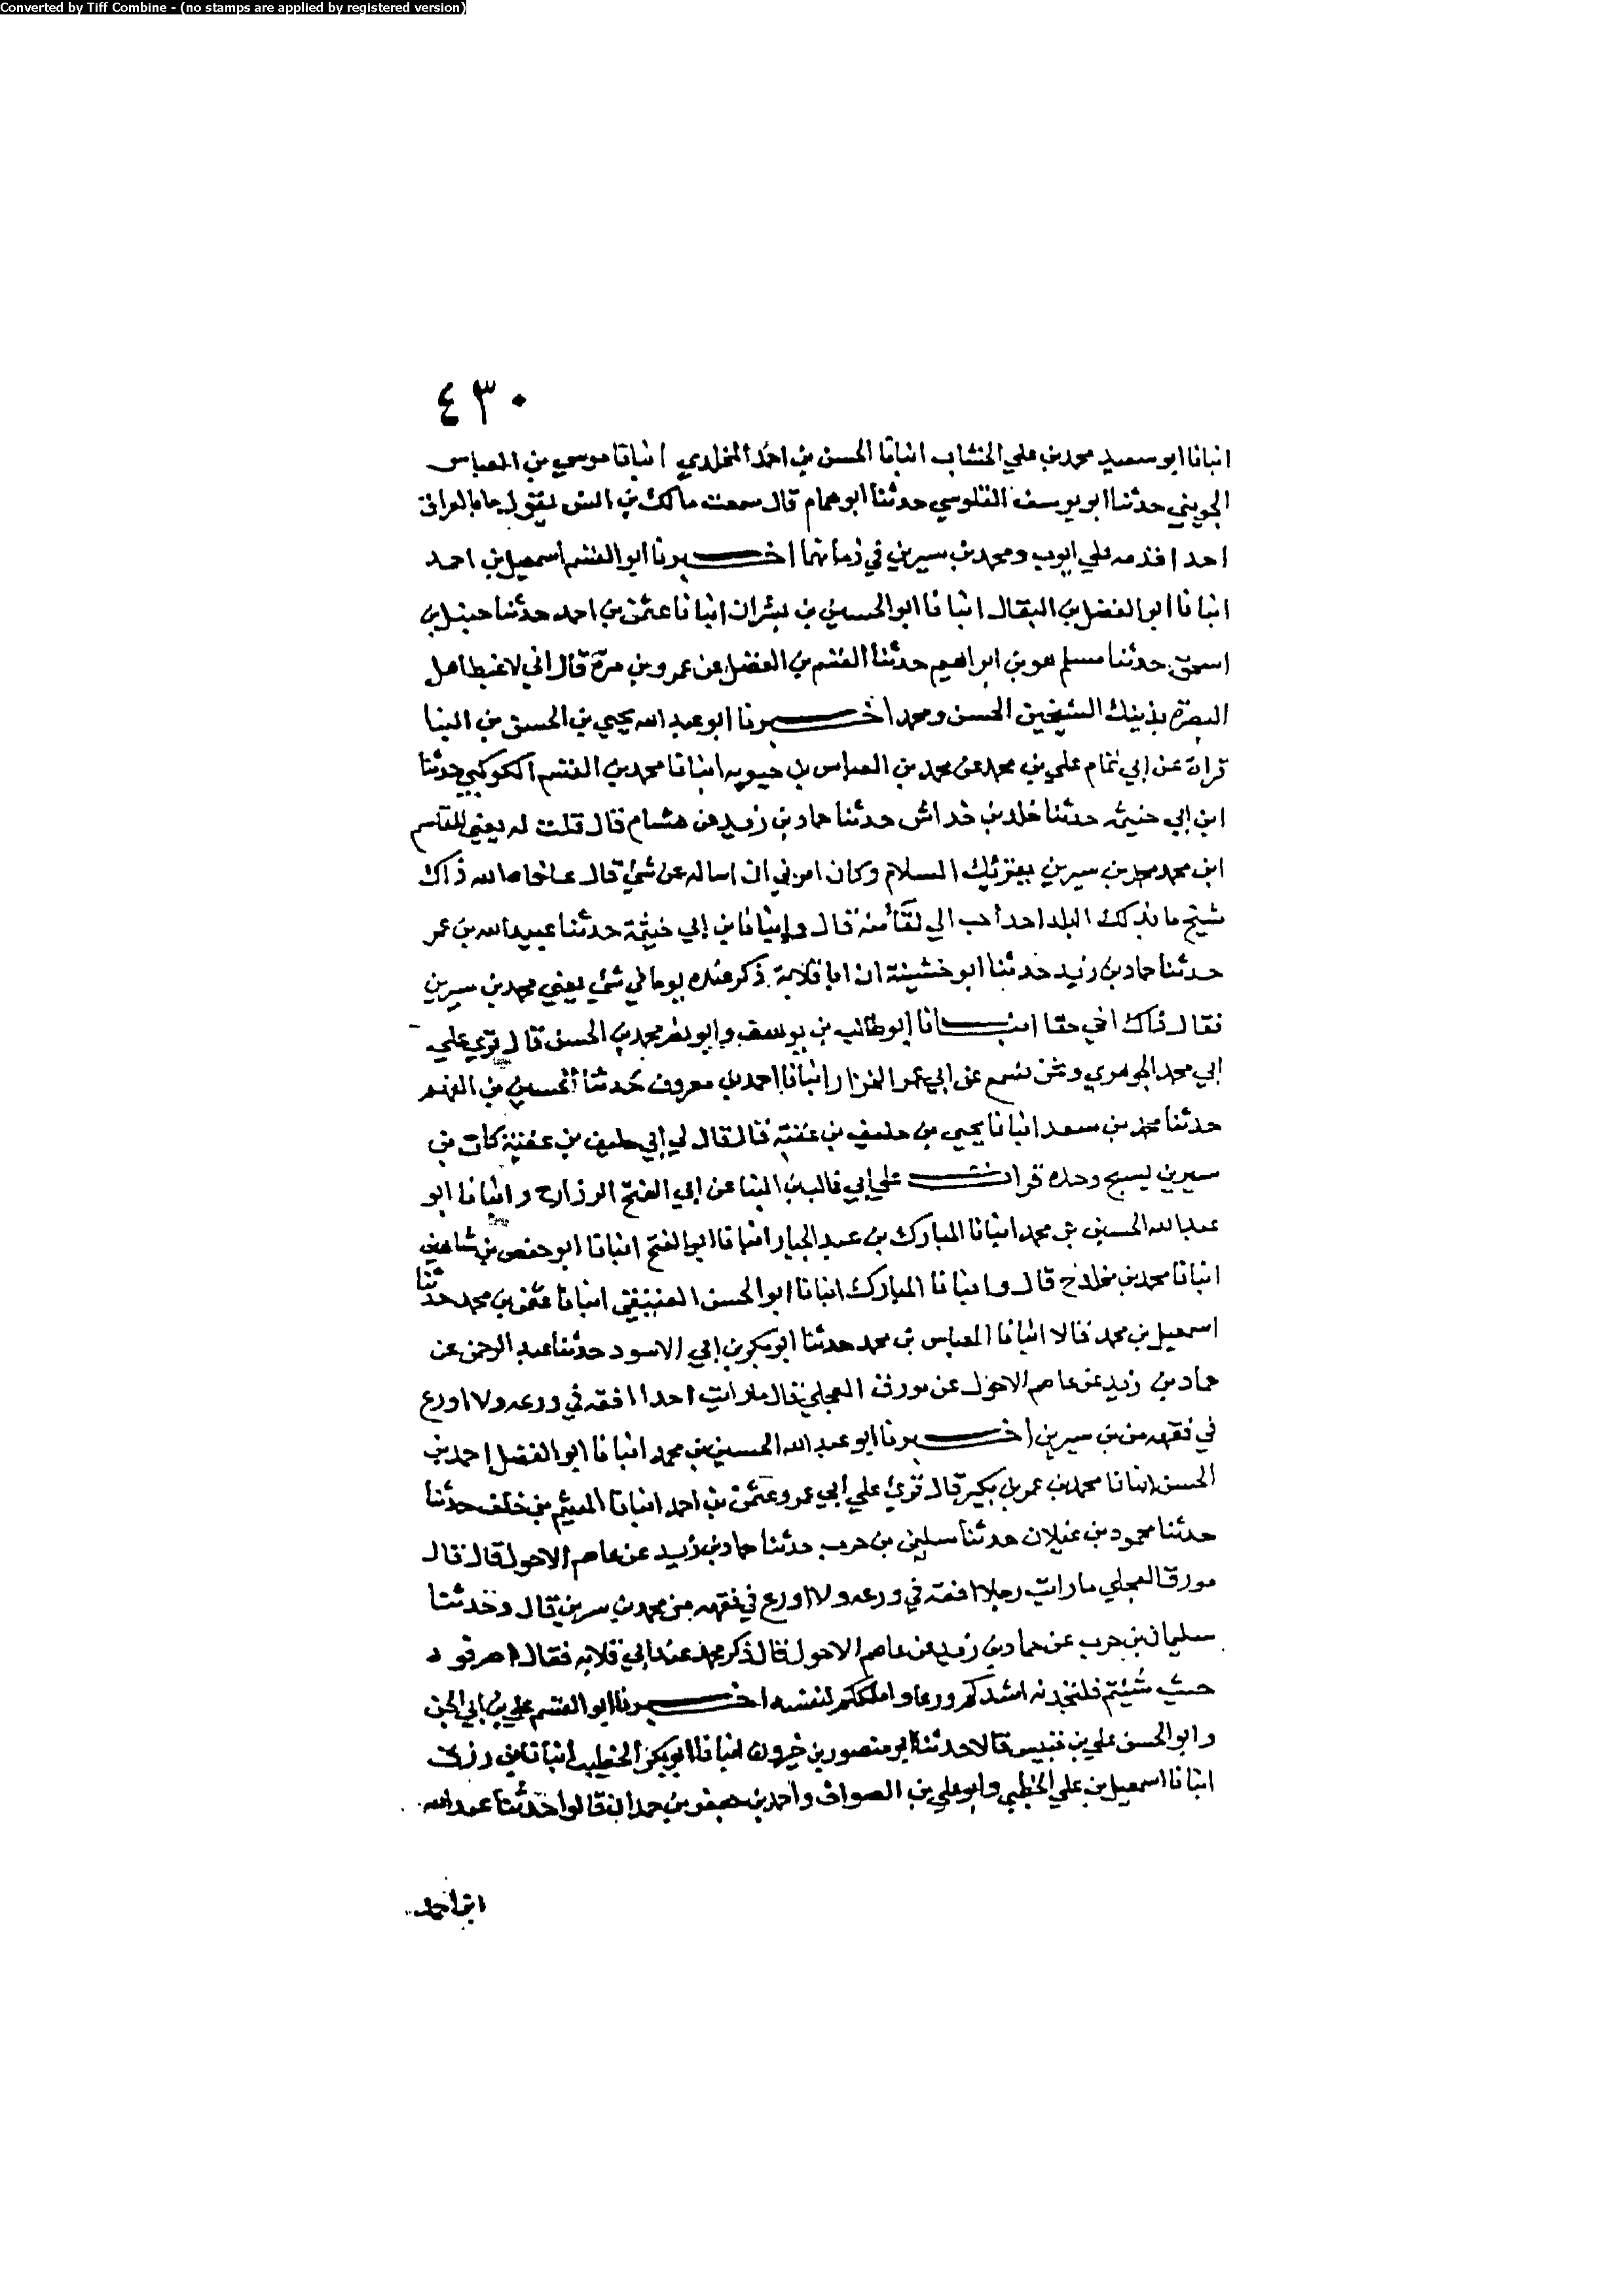 Converted by Tiff Combine - (no stamps are applied by registered version)
٤٣٠
انبانا ابو سعيد محمد بن علي الخشاب انبانا الحسن بن احمد المخلدي انبانا موسي بن العباس
الجويني حدثنا ابو يوسف القلوسي حدثنا ابو همام قال سمعت مالك بن انس يقول ما بالعراق
احدا اقدمه علي ايوب ومحمد بن سيرين في زمانهما اخبرنا ابو القسم اسمعيل بن احمد
انبانا ابو الفضل بن البقال انبانا ابو الحسين بن بشران انبانا عثمن بن احمد حدثنا حنبل بن
اسحق حدثنا مسلم هو بن ابراهيم حدثنا القسم بن الفضل عن عمرو بن مرة قال اني لاغبط اهل
البصرة بذينك الشيخين الحسن ومحمد اخبرنا ابو عبد الله يحيي بن الحسن بن البنا
قراة عن ابي تمام علي بن محمد عن محمد بن العباس بن حيويه انبانا محمد بن القسم الكوكبي حدثنا
ابن ابي خيثمه حدثنا خلد بن خداش حدثنا حماد بن زيد عن هشام قال قلت له يعني للقاسم
ابن محمد محمد بن سيرين يقرئك السلام وكان امرني ان اساله عن شئ قال عافاه الله ذاك
شيخ ما بذلك البلد احد احب الي لقأ منه قال وانبانا بن ابي خيثمة حدثنا عبيد الله بن عمر
حدثنا حماد بن زيد حدثنا ابو خشينة ان ابا قلابة ذكر عنده يوما في شئ يعني محمد بن سيرين
فقال ذاك اخي حقا انبانا ابو طالب بن يوسف وابو نصر محمد بن الحسن قال قرئ علي
ابي محمد الجوهري ونحن نسمع عن ابي عمر الخزاز انبانا احمد بن معروف حدثنا الحسين بن الفهم
حدثنا محمد بن سعد انبانا يحيي بن خليف بن عقبة قال قال لي ابي خليف بن عقبة كان بن
سيرين يسبح وحده قرات علي ابي غالب بن البنا عن ابي الفتح الرزاز ح وانبانا ابو
عبد الله الحسين بن محمد انبانا المبارك بن عبد الجبار انبانا ابو الفتح انبانا ابو حفص بن شاهين
انبانا محمد بن مخلد ح قال وانبانا المبارك انبانا ابو الحسن العتيقي انبانا عثمن بن محمد حدثنا
اسمعيل بن محمد قالا انبانا العباس بن محمد حدثنا ابو بكر بن ابي الاسود حدثنا عبد الرحمن عن
حماد بن زيد عن عاصم الاحول عن مورق العجلي قال ما رايت احدا افقه في ورعه ولا اورع
في فقهه من بن سيرين اخبرنا ابو عبد الله الحسين بن محمد انبانا ابو الفضل احمد بن
الحسن انبانا محمد بن عمر بن بكير قال قرئ علي ابي عمرو عثمن بن احمد انبانا الهيثم بن خلف حدثنا
حدثنا محمود بن غيلان حدثنا سليمن بن حرب حدثنا حماد بن زيد عن عاصم الاحول قال قال
مورق العجلي ما رايت رجلا افقه في ورعه ولا اورع في فقهه من محمد بن سيرين قال وحدثنا
سليمان بن حرب عن حماد بن زيد عن عاصم الاحول قال ذكر محمد عند ابي قلابه فقال اصرفوه
حيث شئتم فلتجدنه اشدكم ورعا واملككم لنفسه اخبرنا ابو القسم علي بن ابي الجن
وابو الحسن علي بن قبيس قالا حدثنا ابو منصور بن خيرون انبانا ابو بكر الخطيب انبانا بن رزق
انبانا اسمعيل بن علي الخطبي وابو علي بن الصواف واحمد بن جعفر بن حمدان قالوا حدثنا عبد الله
ابن احمد